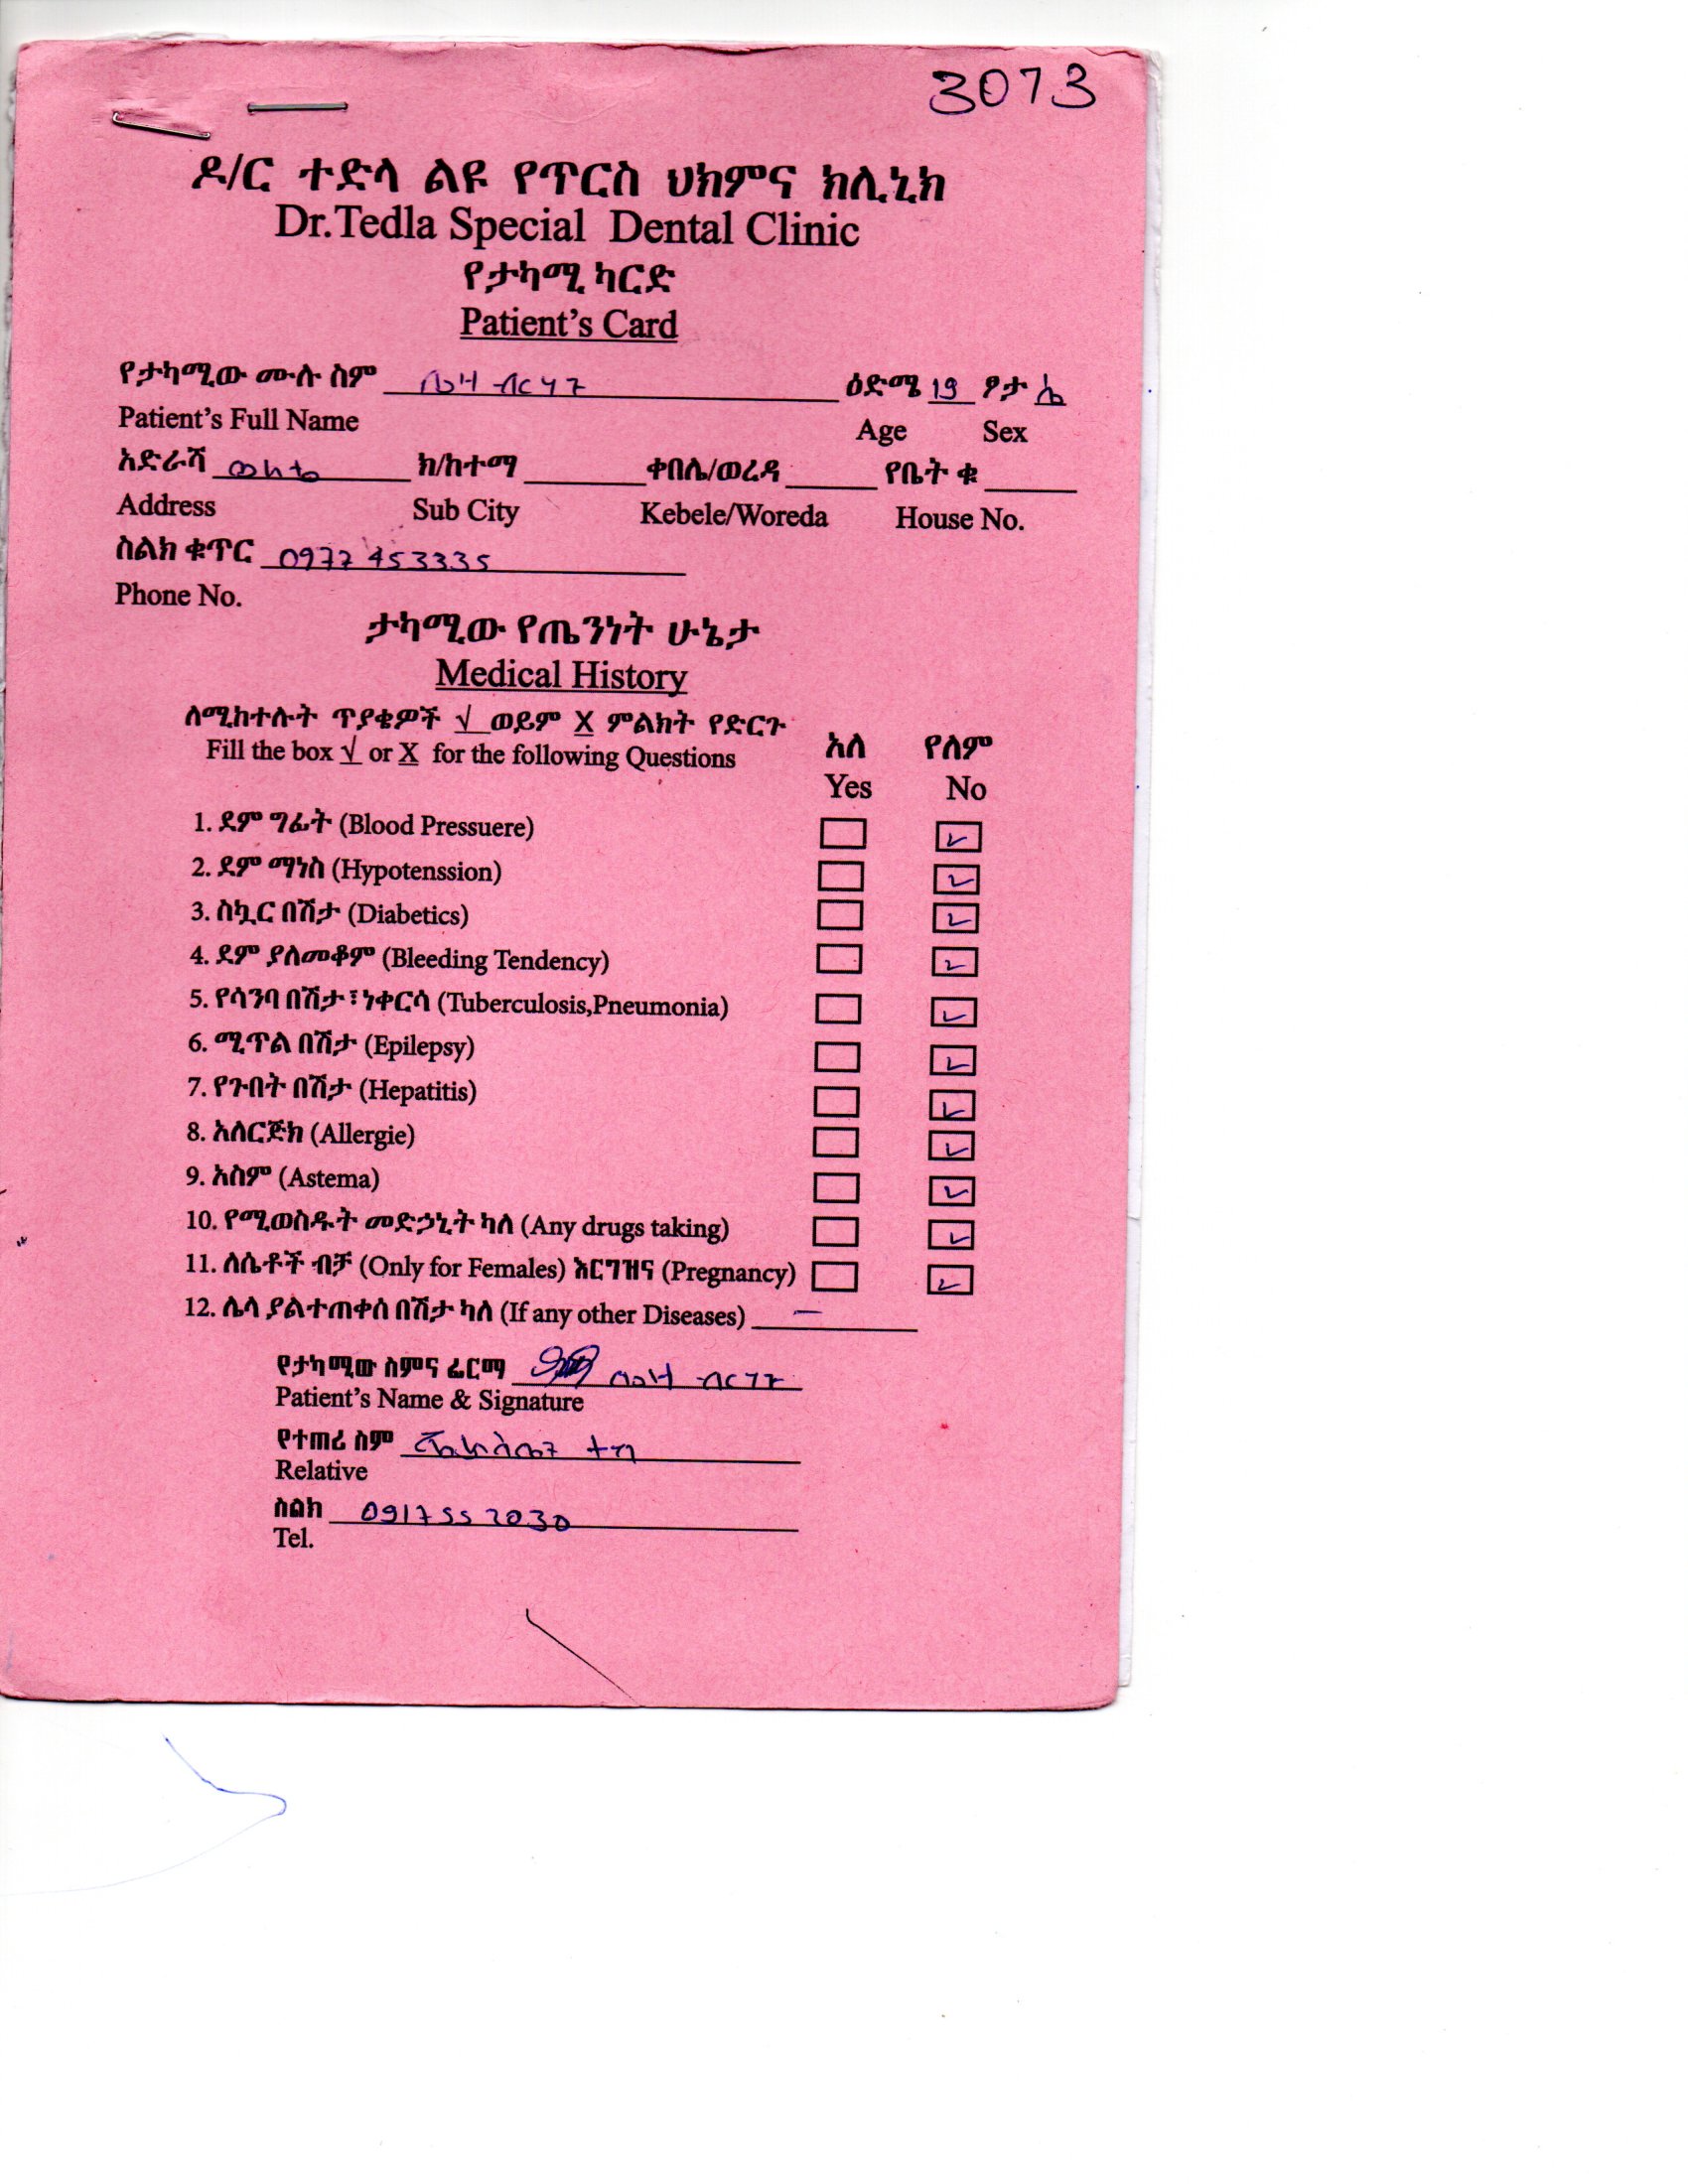 3073
ዶ/ር ተድላ ልዩ የጥርስ ህክምና ክሊኒክ
Dr.Tedla Special Dental Clinic
የታካሚ ካርድ
Patient's Card
የታካሚው ሙሉ ስም ቤዛ ብርሃን ዕድሜ 19 ፆታ ሴ
Patient's Full Name Age Sex
አድራሻ ወለቴ ክ/ከተማ ቀበሌ/ወረዳ የቤት ቁ
Address Sub City Kebele/Woreda House No.
ስልክ ቁጥር 0977 453335
Phone No.
ታካሚው የጤንነት ሁኔታ
Medical History
ለሚከተሉት ጥያቄዎች √ ወይም X ምልክት የድርጉ
Fill the box √ or X for the following Questions
አለ የለም
Yes No
1. ደም ግፊት (Blood Pressuere) ✓
2. ደም ማነስ (Hypotenssion) ✓
3. ስኳር በሽታ (Diabetics) ✓
4. ደም ያለመቆም (Bleeding Tendency) ✓
5. የሳንባ በሽታ፣ነቀርሳ (Tuberculosis,Pneumonia) ✓
6. ሚጥል በሽታ (Epilepsy) ✓
7. የጉበት በሽታ (Hepatitis) ✓
8. አለርጅክ (Allergie) ✓
9. አስም (Astema) ✓
10. የሚወስዱት መድኃኒት ካለ (Any drugs taking) ✓
11. ለሴቶች ብቻ (Only for Females) እርግዝና (Pregnancy) ✓
12. ሌላ ያልተጠቀሰ በሽታ ካለ (If any other Diseases) –
የታካሚው ስምና ፊርማ ቤዛ ብርሃን
Patient's Name & Signature
የተጠሪ ስም
Relative
ስልክ 0917 55 2030
Tel.